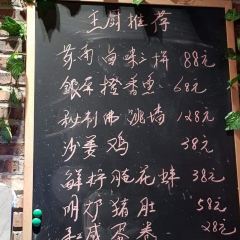 主厨推荐
苏南卤味三拼 88元
銀屏橙香魚 68元
秘制佛跳墙 128元
沙姜鸡 38元
鲜拧脆花蛙 38元
明炉猪肚 58元
蛋卷 28元